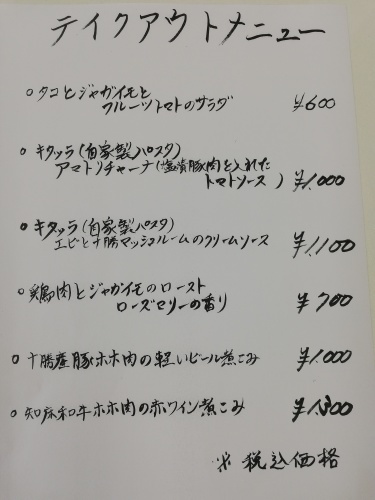 テイクアウトメニュー
○タコとジャガイモと
フルーツトマトのサラダ ¥600
○キタッラ(自家製パスタ)
アマトリチャーナ(塩漬豚肉を入れた
トマトソース) ¥1,000
○キタッラ(自家製パスタ)
エビと十勝マッシュルームのクリームソース ¥1,100
○鶏肉とジャガイモのロースト
ローズマリーの香り ¥700
○十勝産豚ホホ肉の軽いビール煮こみ ¥1,000
○知床和牛ホホ肉の赤ワイン煮こみ ¥1,300
※税込価格